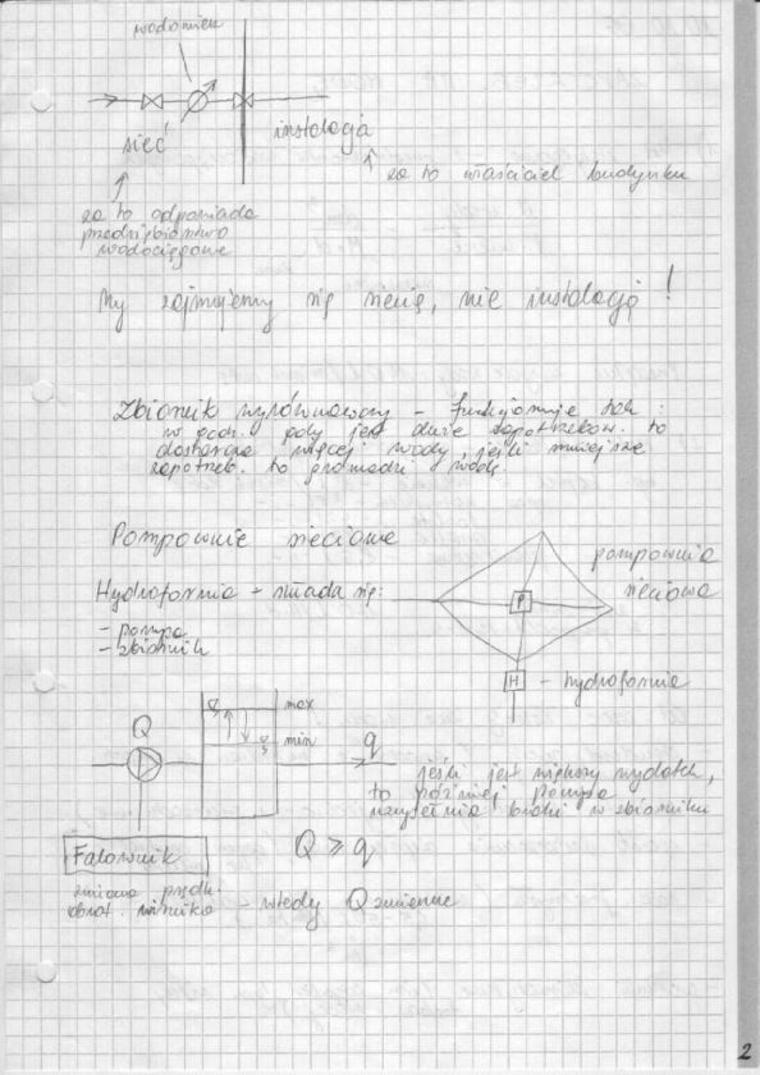 wodomierz
sieć
instalacja
za to właściciel budynku
za to odpowiada
przedsiębiorstwo
wodociągowe
My zajmujemy się siecią, nie instalacją !
Zbiornik wyrównawczy - funkcjonuje tak :
w godz. gdy jest duże zapotrzebow. to
dostarcza więcej wody, jeśli mniejsze
zapotrzeb. to gromadzi wodę.
Pompownie sieciowe
pompownia
sieciowa
Hydrofornia - składa się:
P
- pompa
- zbiornik
H - hydrofornia
max
Q
min
q
jeśli jest większy wydatek,
to później pompa
uzupełnia braki w zbiorniku
Falownik
Q ⩾ q
zmiana prędk.
obrot. wirnika - wtedy Q zmienne
2